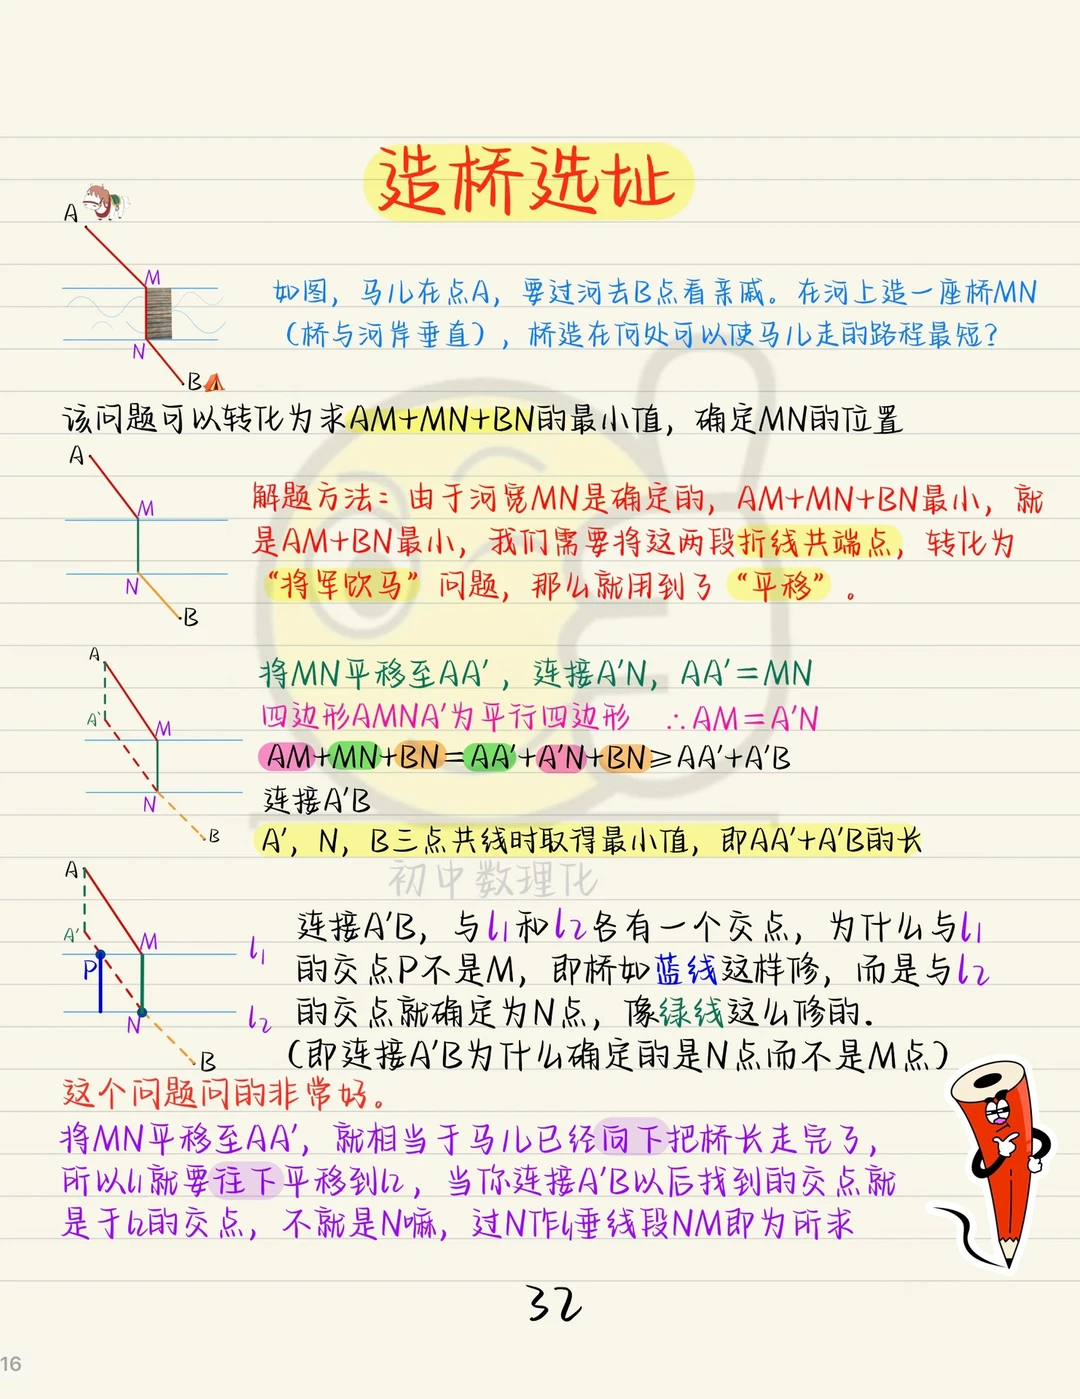 造桥选址
A
M
N
B
如图，马儿在点A，要过河去B点看亲戚。在河上造一座桥MN
（桥与河岸垂直），桥造在何处可以使马儿走的路程最短？
该问题可以转化为求AM+MN+BN的最小值，确定MN的位置
A
M
N
B
解题方法：由于河宽MN是确定的，AM+MN+BN最小，就
是AM+BN最小，我们需要将这两段折线共端点，转化为
“将军饮马”问题，那么就用到了“平移”。
A
A'
M
N
B
将MN平移至AA'，连接A'N，AA'=MN
四边形AMNA'为平行四边形 ∴AM=A'N
AM+MN+BN=AA'+A'N+BN≥AA'+A'B
连接A'B
A'，N，B三点共线时取得最小值，即AA'+A'B的长
初中数理化
A
A'
M
P
N
B
l1
l2
连接A'B，与l1和l2各有一个交点，为什么与l1
的交点P不是M，即桥如蓝线这样修，而是与l2
的交点就确定为N点，像绿线这么修的.
（即连接A'B为什么确定的是N点而不是M点）
这个问题问的非常好。
将MN平移至AA'，就相当于马儿已经向下把桥长走完了，
所以l1就要往下平移到l2，当你连接A'B以后找到的交点就
是于l2的交点，不就是N嘛，过N作l1垂线段NM即为所求
32
16